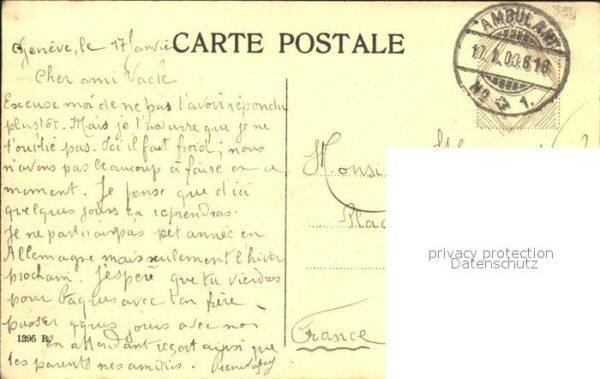 Genève, le 17 Janvier
CARTE POSTALE
AMBULANT
No 1.
Cher ami
Excuse moi de ne pas t'avoir répondu
plustôt. Mais je t'assure que je ne
t'oublie pas. Ici il fait froid; nous
n'avons pas beaucoup à faire en ce
moment. Je pense que d'ici
quelques jours ça reprendras.
Je ne partirais pas cet année en
Allemagne mais seulement l'hiver
prochain. J'espère que tu viendras
pour Pâques avec ton frère
passer qques jours avec moi
en attendant reçoit ainsi que
tes parents mes amitiés.
Monsi
Pla
France
1395 B.
privacy protection
Datenschutz